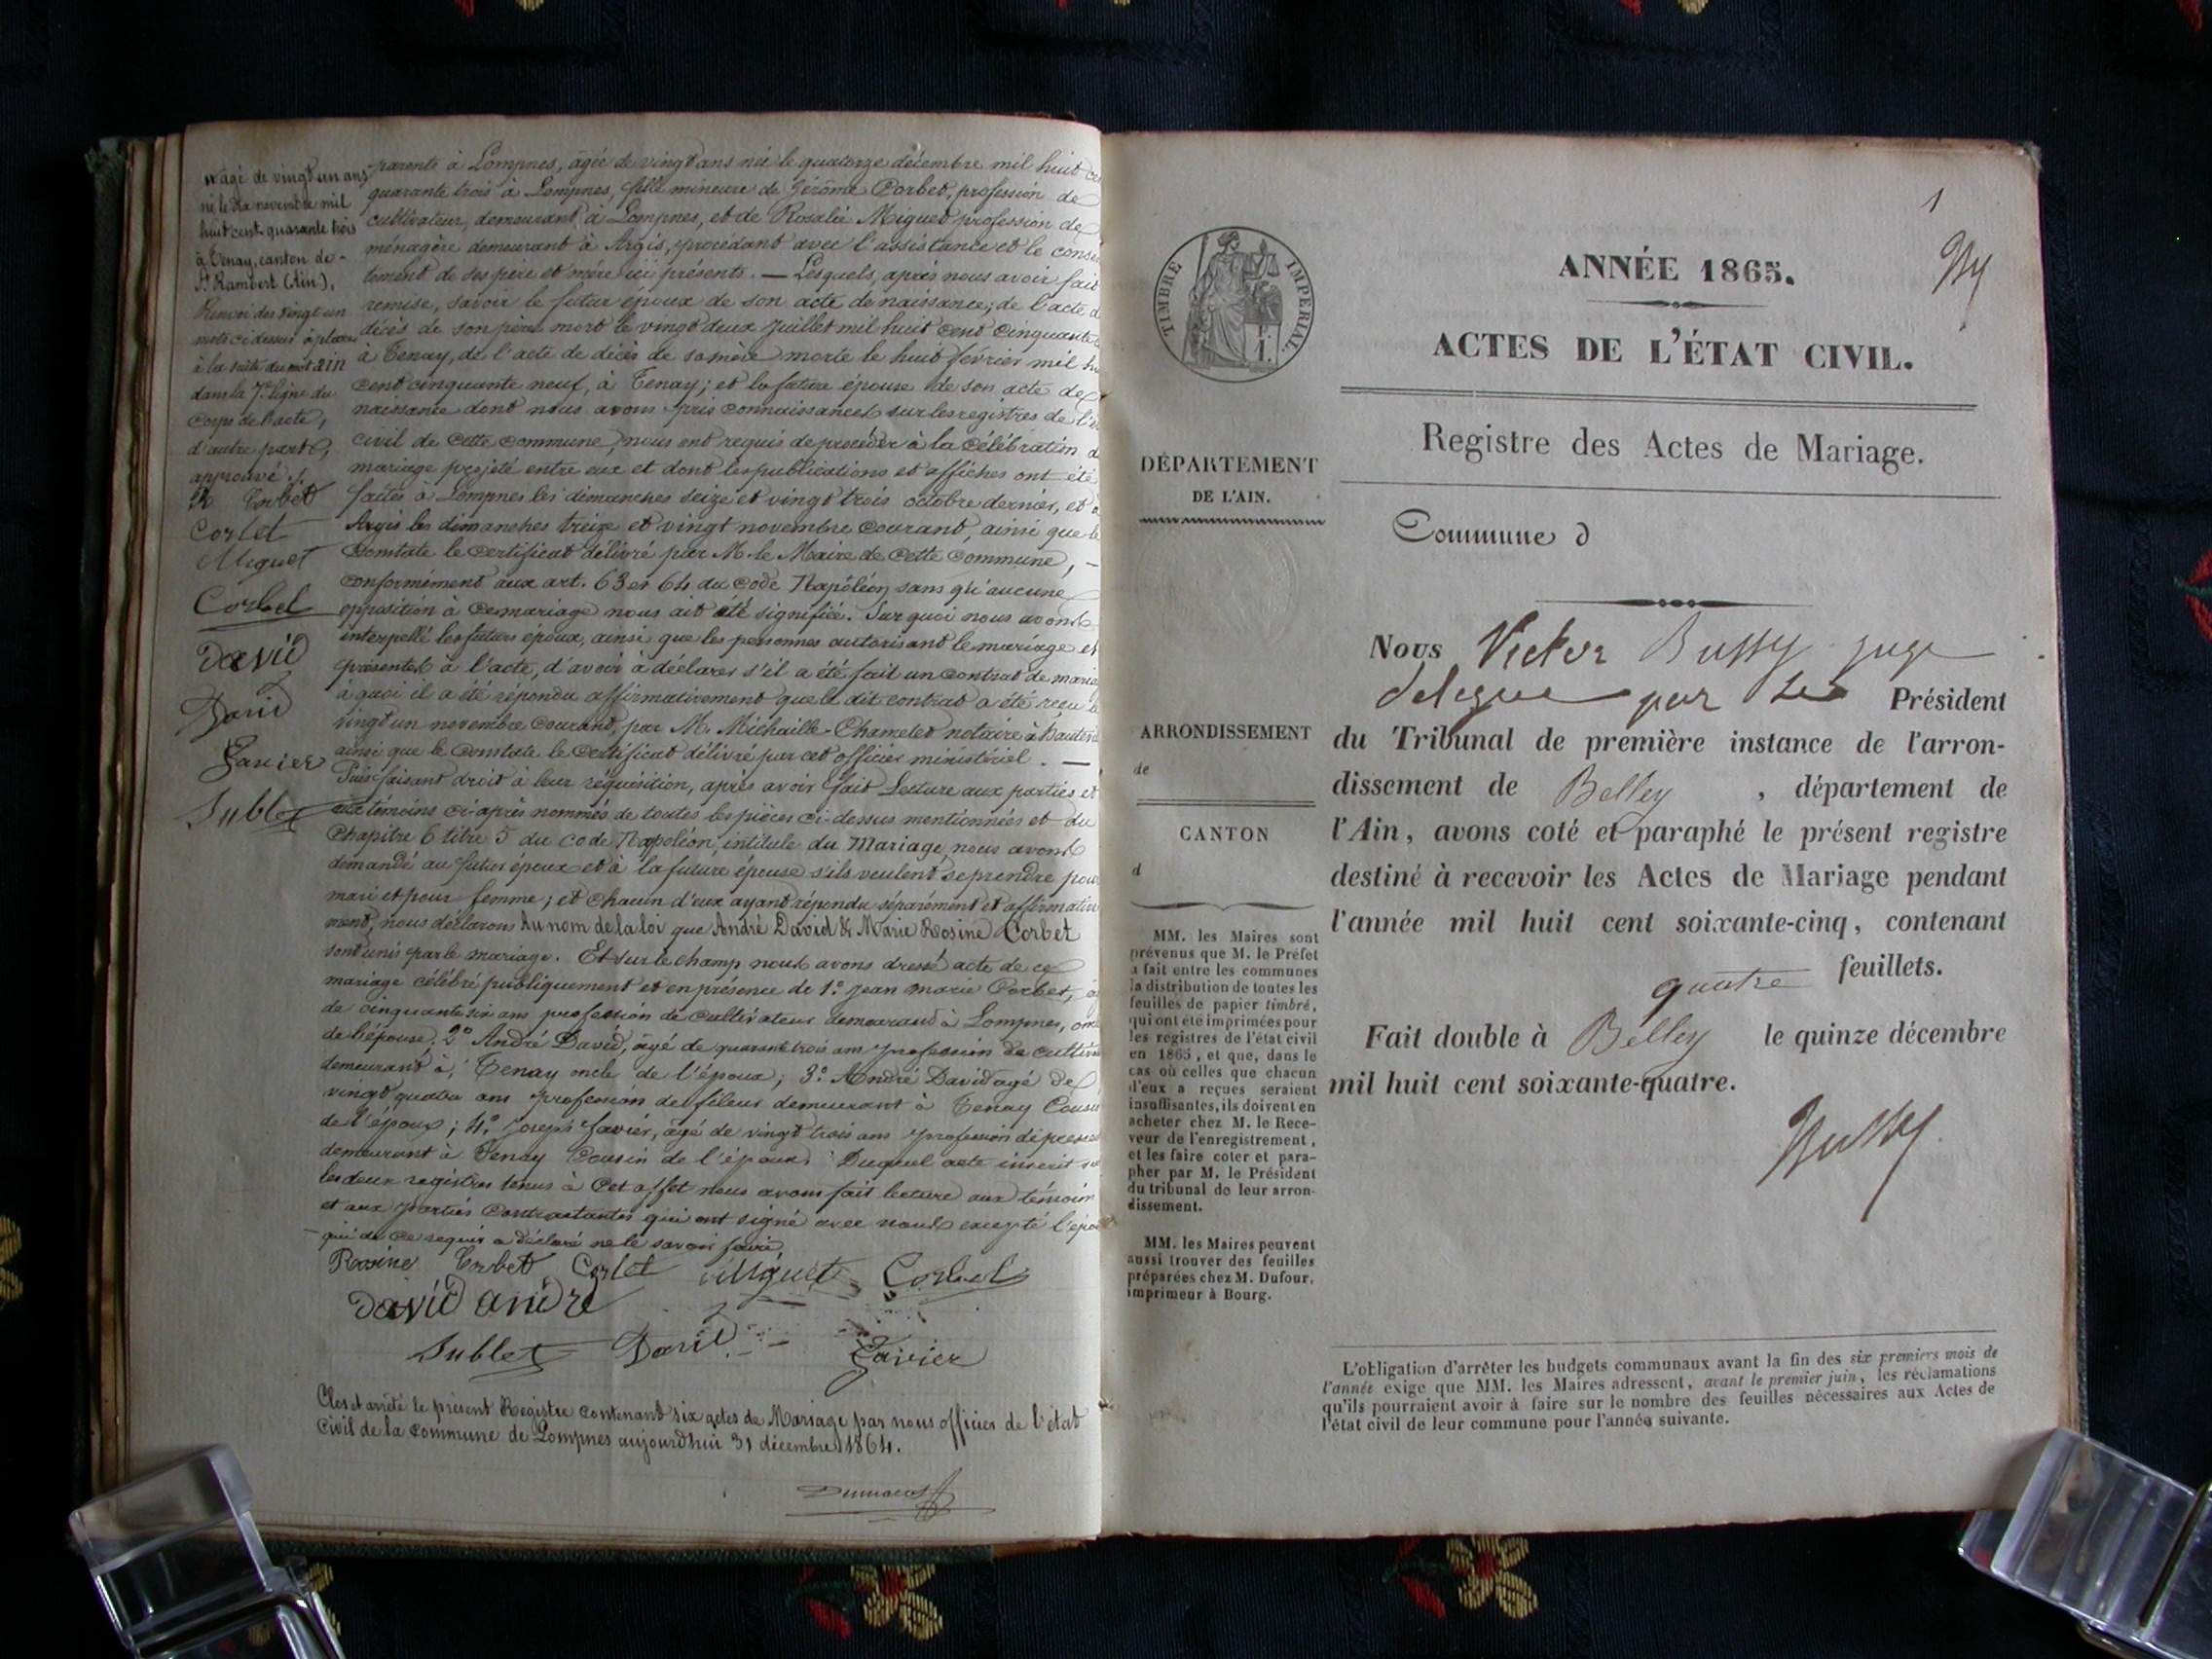 âgé de vingt un ans
né le dix novembre mil
huit cent quarante trois
à Tenay, canton de -
St Rambert (Ain),
Renvoi des vingt un
mots ci dessus à placer
à la suite du mot Ain
dans la 7e ligne du
corps de l'acte,
d'autre part,
approuvé ./.
R Corbet
Corbet
Miguet
Corbet
David
David
Javier
Sublet
parents à Lompnes, âgée de vingt ans née le quatorze décembre mil huit
quarante trois à Lompnes, fille mineure de Jérôme Corbet, profession de
cultivateur, demeurant à Lompnes, et de Rosalie Miguet profession de
ménagère demeurant à Argis, procédant avec l'assistance et le consen
tement de ses père et mère ici présents. — Lesquels, après nous avoir fait
remise, savoir le futur époux de son acte de naissance; de l'acte
décès de son père mort le vingt deux Juillet mil huit cent cinquante
à Tenay, de l'acte de décès de sa mère morte le huit février mil hu
cent cinquante neuf, à Tenay; et la future épouse de son acte de
naissance dont nous avons pris connaissance sur les registres de l'é
civil de cette commune, nous ont requis de procéder à la célébration d
mariage projeté entre eux et dont les publications et affiches ont été
faites à Lompnes les dimanches seize et vingt trois octobre dernier, et à
Argis les dimanches treize et vingt novembre courant, ainsi que le
constate le certificat délivré par M. le Maire de cette commune, -
conformément aux art. 63 et 64 du Code Napoléon sans qu'aucune
opposition à ce mariage nous ait été signifiée. Sur quoi nous avons
interpellé les futurs époux, ainsi que les personnes autorisant le mariage et
présentes à l'acte, d'avoir à déclarer s'il a été fait un contrat de maria
à quoi il a été répondu affirmativement que le dit contrat a été reçu le
vingt un novembre courant, par M. Michaille-Chamelet notaire à Hautevil
ainsi que le constate le certificat délivré par cet officier ministériel. —
Puis faisant droit à leur réquisition, après avoir fait lecture aux parties et
aux témoins ci-après nommés de toutes les pièces ci-dessus mentionnées et du
Chapitre 6 titre 5 du code Napoléon, intitulé du Mariage, nous avons
demandé au futur époux et à la future épouse s'ils veulent se prendre pour
mari et pour femme; et chacun d'eux ayant répondu séparément et affirmative
ment, nous déclarons Au nom de la loi que André David & Marie Rosine Corbet
sont unis par le mariage. Et sur le champ nous avons dressé acte de ce
mariage célébré publiquement et en présence de 1.° Jean marie Corbet, â
de cinquante six ans profession de cultivateur demeurant à Lompnes, oncle
de l'épouse, 2° André David, âgé de quarante trois ans profession de cultiva
demeurant à, Tenay oncle de l'époux; 3.° André David agé de
vingt quatre ans profession de fileur demeurant à Tenay Cousin
de l'époux; 4.° Joseph Javier, âgé de vingt trois ans profession de
demeurant à Tenay Cousin de l'époux. Duquel acte inscrit su
les deux registres tenus à cet effet nous avons fait lecture aux témoins
et aux parties contractantes qui ont signé avec nous excepté l'épou
qui de ce requis a déclaré ne le savoir faire.
Rosine Corbet Corbet Miguet Corbet
David andré
Sublet David Javier
Clos et arrêté le présent Registre contenant six actes de Mariage par nous officier de l'état
Civil de la Commune de Lompnes aujourd'hui 31 décembre 1864.
1
TIMBRE IMPÉRIAL.
DÉPARTEMENT
DE L'AIN.
ARRONDISSEMENT
de
CANTON
d
MM. les Maires sont
prévenus que M. le Préfet
a fait entre les communes
la distribution de toutes les
feuilles de papier timbré,
qui ont été imprimées pour
les registres de l'état civil
en 1865, et que, dans le
cas où celles que chacun
d'eux a reçues seraient
insuffisantes, ils doivent en
acheter chez M. le Rece-
veur de l'enregistrement,
et les faire coter et para-
pher par M. le Président
du tribunal de leur arron-
dissement.
MM. les Maires peuvent
aussi trouver des feuilles
préparées chez M. Dufour,
imprimeur à Bourg.
ANNÉE 1865.
ACTES DE L'ÉTAT CIVIL.
Registre des Actes de Mariage.
Commune d
Nous Victor Bussy juge
délégué par le Président
du Tribunal de première instance de l'arron-
dissement de Belley, département de
l'Ain, avons coté et paraphé le présent registre
destiné à recevoir les Actes de Mariage pendant
l'année mil huit cent soixante-cinq, contenant
quatre feuillets.
Fait double à Belley le quinze décembre
mil huit cent soixante-quatre.
Bussy
L'obligation d'arrêter les budgets communaux avant la fin des six premiers mois de
l'année exige que MM. les Maires adressent, avant le premier juin, les réclamations
qu'ils pourraient avoir à faire sur le nombre des feuilles nécessaires aux Actes de
l'état civil de leur commune pour l'année suivante.